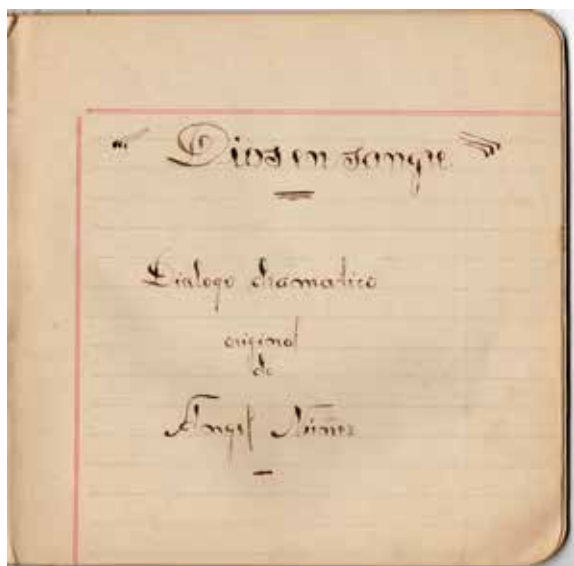 "Dios en sangre"
Dialogo dramatico
original
de
Ángel Núñez